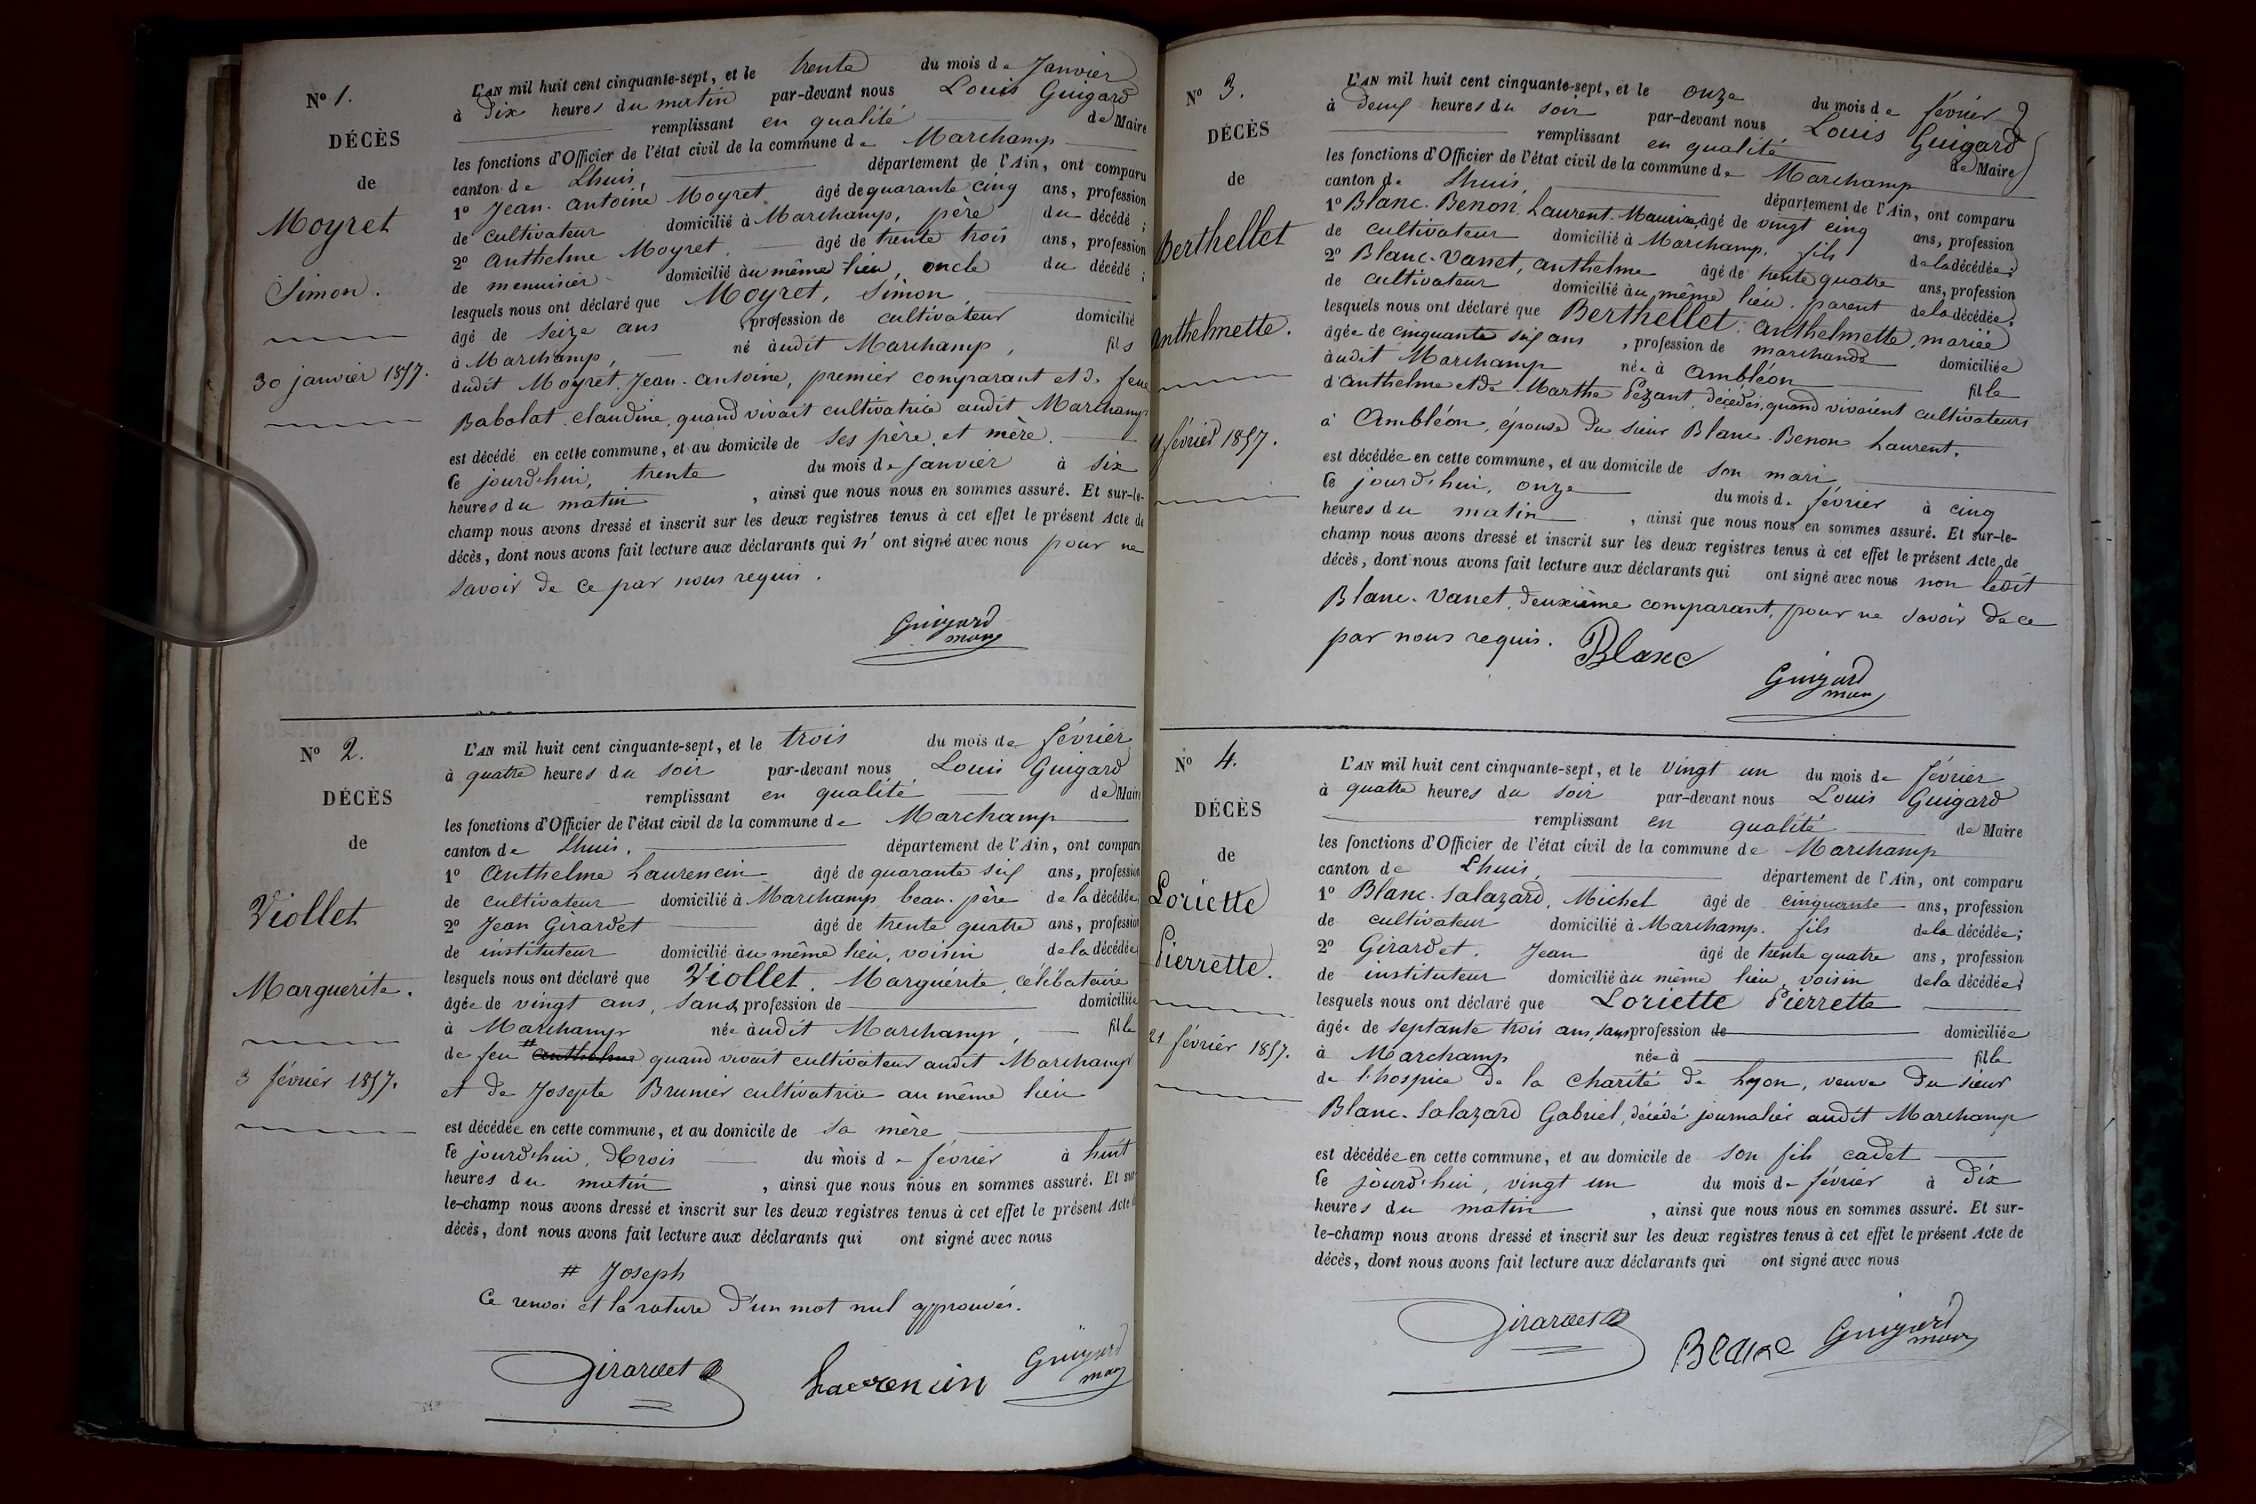 N° 1.
DÉCÈS
de
Moyret
Simon.
30 janvier 1857.
L'AN mil huit cent cinquante-sept, et le trente du mois de Janvier
à dix heures du matin par-devant nous Louis Guigard
remplissant en qualité de Maire
les fonctions d'Officier de l'état civil de la commune de Marchamp
canton de Lhuis, département de l'Ain, ont comparu
1° Jean-antoine Moyret âgé de quarante cinq ans, profession
de cultivateur domicilié à Marchamp, père du décédé ;
2° anthelme Moyret, âgé de trente trois ans, profession
de menuisier domicilié au même lieu, oncle du décédé ;
lesquels nous ont déclaré que Moyret, Simon,
âgé de seize ans, profession de cultivateur domicilié
à Marchamp, né audit Marchamp, fils
dudit Moyret, Jean-antoine, premier comparant et de feue
Babolat claudine, quand vivait cultivatrice audit Marchamp
est décédé en cette commune, et au domicile de ses père et mère.
Ce jourd'hui, trente du mois de janvier à six
heures du matin, ainsi que nous nous en sommes assuré. Et sur-le-
champ nous avons dressé et inscrit sur les deux registres tenus à cet effet le présent Acte de
décès, dont nous avons fait lecture aux déclarants qui n'ont signé avec nous pour ne
savoir de ce par nous requis.
Guigard
maire
N° 2.
DÉCÈS
de
Viollet
Marguerite.
3 février 1857.
L'AN mil huit cent cinquante-sept, et le trois du mois de février
à quatre heures du soir par-devant nous Louis Guigard
remplissant en qualité de Maire
les fonctions d'Officier de l'état civil de la commune de Marchamp
canton de Lhuis. département de l'Ain, ont comparu
1° Anthelme Laurencin âgé de quarante six ans, profession
de cultivateur domicilié à Marchamp, beau-père de la décédée
2° Jean Girardet âgé de trente quatre ans, profession
de instituteur domicilié au même lieu, voisin de la décédée
lesquels nous ont déclaré que Viollet, Marguerite, célibataire
âgée de vingt ans, sans profession de domiciliée
à Marchamp née audit Marchamp, fille
de feu # anthelme quand vivait cultivateur audit Marchamp
et de Josepte Brunier cultivatrice au même lieu
est décédée en cette commune, et au domicile de sa mère
Ce jourd'hui, trois du mois de février à huit
heures du matin, ainsi que nous nous en sommes assuré. Et sur
le-champ nous avons dressé et inscrit sur les deux registres tenus à cet effet le présent Acte
décès, dont nous avons fait lecture aux déclarants qui ont signé avec nous
# Joseph
Ce renvoi et la rature d'un mot nul approuvés.
Girardet Laurencin Guigard
maire
N° 3.
DÉCÈS
de
Berthellet
Anthelmette.
11 février 1857.
L'AN mil huit cent cinquante-sept, et le onze du mois de février
à deux heures du soir par-devant nous Louis Guigard
remplissant en qualité de Maire
les fonctions d'Officier de l'état civil de la commune de Marchamp
canton de Lhuis, département de l'Ain, ont comparu
1° Blanc-Benon, Laurent-Maurice, âgé de vingt cinq ans, profession
de cultivateur domicilié à Marchamp, fils de la décédée;
2° Blanc-Vanet, anthelme âgé de trente quatre ans, profession
de cultivateur domicilié au même lieu, parent de la décédée;
lesquels nous ont déclaré que Berthellet, anthelmette, mariée
âgée de cinquante six ans, profession de marchande domiciliée
audit Marchamp née à Ambléon fille
d'Anthelme et de Marthe Pezant, décédés, quand vivaient cultivateurs
à Ambléon, épouse du sieur Blanc-Benon Laurent.
est décédée en cette commune, et au domicile de son mari
Ce jourd'hui, onze du mois de février à cinq
heures du matin, ainsi que nous nous en sommes assuré. Et sur-le-
champ nous avons dressé et inscrit sur les deux registres tenus à cet effet le présent Acte de
décès, dont nous avons fait lecture aux déclarants qui ont signé avec nous non ledit
Blanc-Vanet, deuxième comparant, pour ne savoir de ce
par nous requis. Blanc
Guigard
maire
N° 4.
DÉCÈS
de
Loriette
Pierrette.
21 février 1857.
L'AN mil huit cent cinquante-sept, et le vingt un du mois de février
à quatre heures du soir par-devant nous Louis Guigard
remplissant en qualité de Maire
les fonctions d'Officier de l'état civil de la commune de Marchamp
canton de Lhuis, département de l'Ain, ont comparu
1° Blanc-Salazard, Michel âgé de cinquante ans, profession
de cultivateur domicilié à Marchamp. fils de la décédée;
2° Girardet, Jean âgé de trente quatre ans, profession
de instituteur domicilié au même lieu, voisin de la décédée;
lesquels nous ont déclaré que Loriette Pierrette
âgée de septante trois ans, sans profession de domiciliée
à Marchamp née à fille
de l'hospice de la charité de Lyon, veuve du sieur
Blanc-Salazard Gabriel, décédé journalier audit Marchamp
est décédée en cette commune, et au domicile de son fils cadet
Ce jourd'hui, vingt un du mois de février à dix
heures du matin, ainsi que nous nous en sommes assuré. Et sur-
le-champ nous avons dressé et inscrit sur les deux registres tenus à cet effet le présent Acte de
décès, dont nous avons fait lecture aux déclarants qui ont signé avec nous
Girardet Blanc Guigard
maire